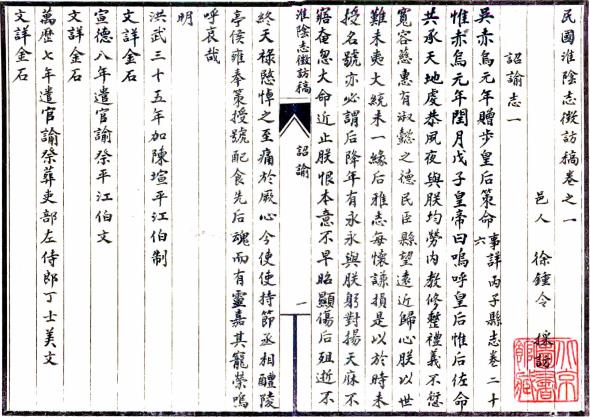 民國淮陰志徵訪稿卷之一
邑人 徐鍾令 採訪
詔諭志一
吳赤烏元年贈步皇后策命事詳丙子縣志卷二十六
惟赤烏元年閏月戊子皇帝曰嗚呼皇后惟后佐命
共承天地虔恭夙夜與朕均勞內教修整禮義不愆
寬容慈惠有淑懿之德民臣縣望遠近歸心朕以世
難未夷大統未一緣后雅志每懷謙損是以於時未
授名號亦必謂后降年有永永與朕躬對揚天庥不
寤奄忽大命近止朕恨本意不早昭顯傷后殂逝不
淮陰志徵訪稿 詔諭 一
終天祿愍悼之至痛於厥心今使使持節丞相醴陵
亭侯雍奉策授號配食先后魂而有靈嘉其寵榮嗚
呼哀哉
明
洪武三十五年加陳瑄平江伯制
文詳金石
宣德八年遣官諭祭平江伯文
文詳金石
萬歷七年遣官諭祭葬吏部左侍郎丁士美文
文詳金石